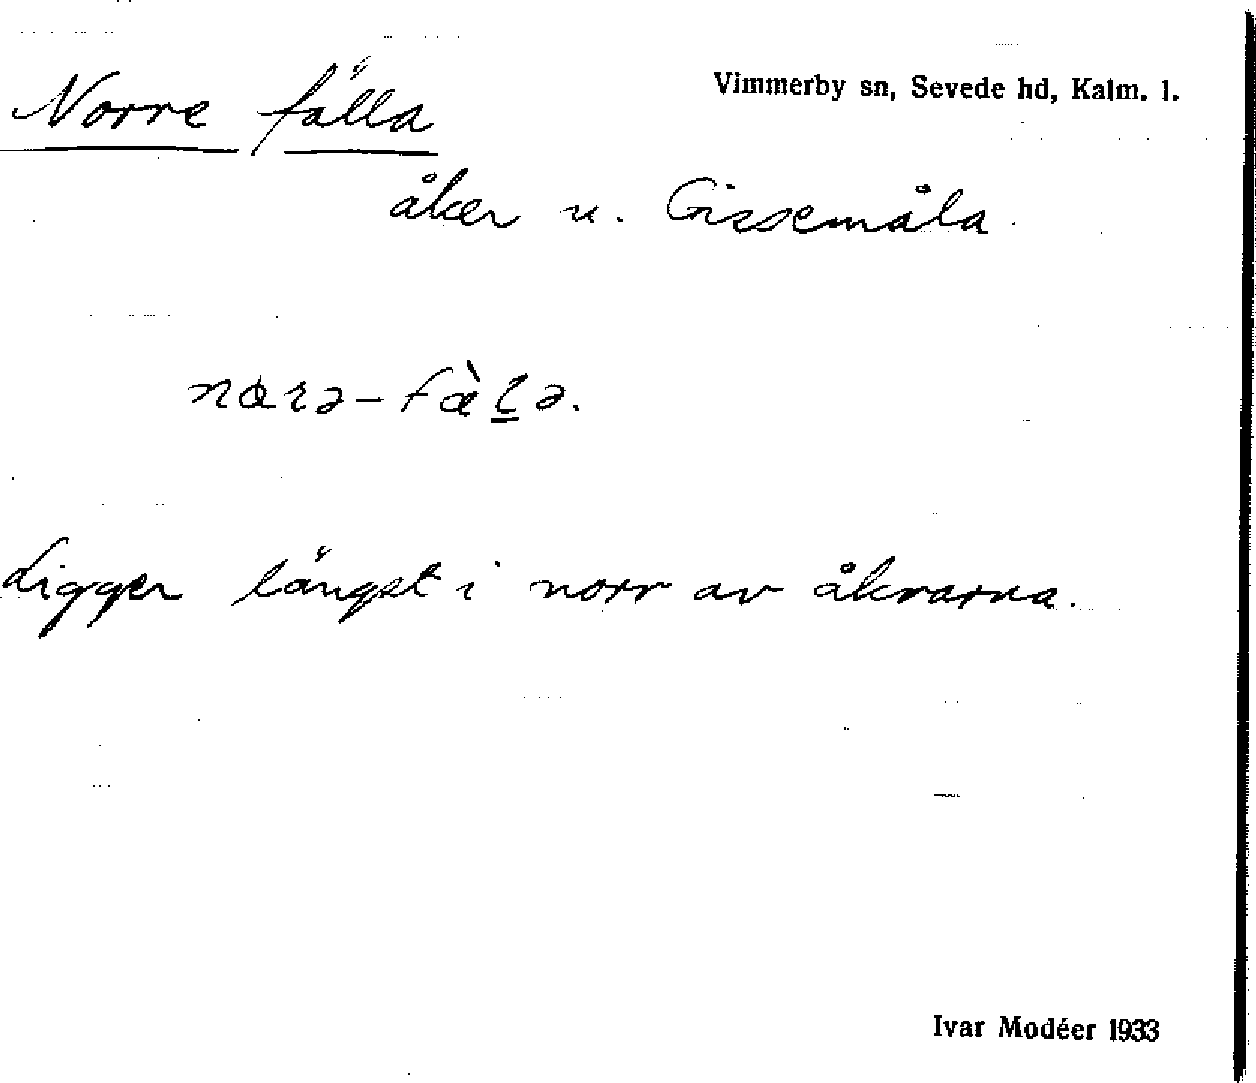 Norre fälla
Vimmerby sn, Sevede hd, Kalm. l.
åker u. Gissemåla.
Ligger längst i norr av åkrarna.
Ivar Modéer 1933